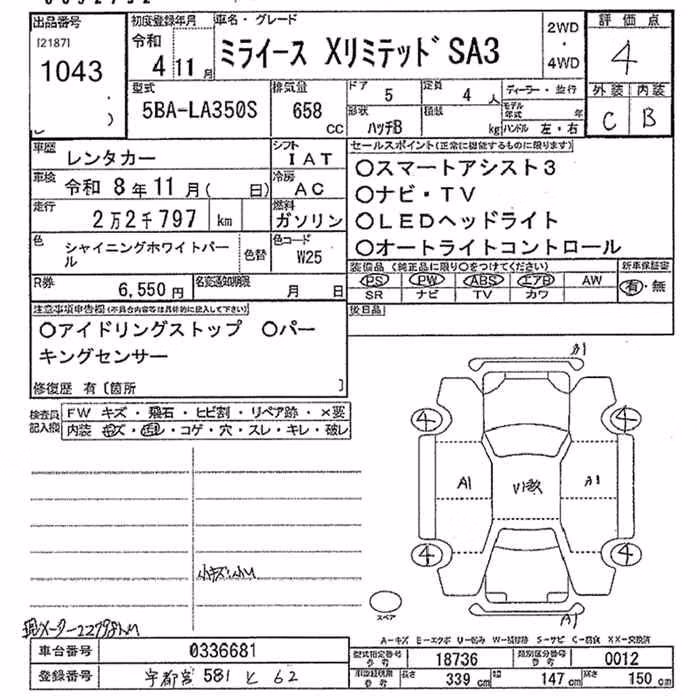 出品番号
[2187]
1043
初度登録年月
令和
4 11 月
車名・グレード
ミライース XリミテッドSA3
2WD
・
4WD
評価点
4
外装 内装
C B
型式
5BA-LA350S
排気量
658
CC
ドア
5
定員
4 人
形状
ハッチB
積載
kg
ディーラー・並行
モデル年式 年
ハンドル 左・右
車歴
レンタカー
シフト
IAT
車検
令和 8 年 11 月( 日)
冷房
AC
走行
2万2千797 km
燃料
ガソリン
色
シャイニングホワイトパール
色替
色コード
W25
R券
6,550 円
名変通知期限
月 日
セールスポイント(正常に機能するものに限ります)
○スマートアシスト3
○ナビ・TV
○LEDヘッドライト
○オートライトコントロール
装備品(純正品に限り○をつけてください)
新車保証書
PS PW ABS エアB AW
SR ナビ TV カワ
有・無
後日品
注意事項申告欄(不具合内容等は具体的に記入して下さい)
○アイドリングストップ ○パー
キングセンサー
修復歴 有〔箇所 〕
検査員
記入欄
FW キズ・飛石・ヒビ割・リペア跡・×要
内装 キズ・汚レ・コゲ・穴・スレ・キレ・破レ
カ1
4 4
A1
カ1
4 4
A1
小キズ・小U
現メーター22798km
スペア
A-キズ E-エクボ U-凹み W-補修跡 S-サビ C-腐食 XX-交換済
車台番号
0336681
登録番号
宇都宮 581 と 62
型式指定番号
参考
18736
類別区分番号
参考
0012
長さ
339 cm
幅
147 cm
高さ
150 cm